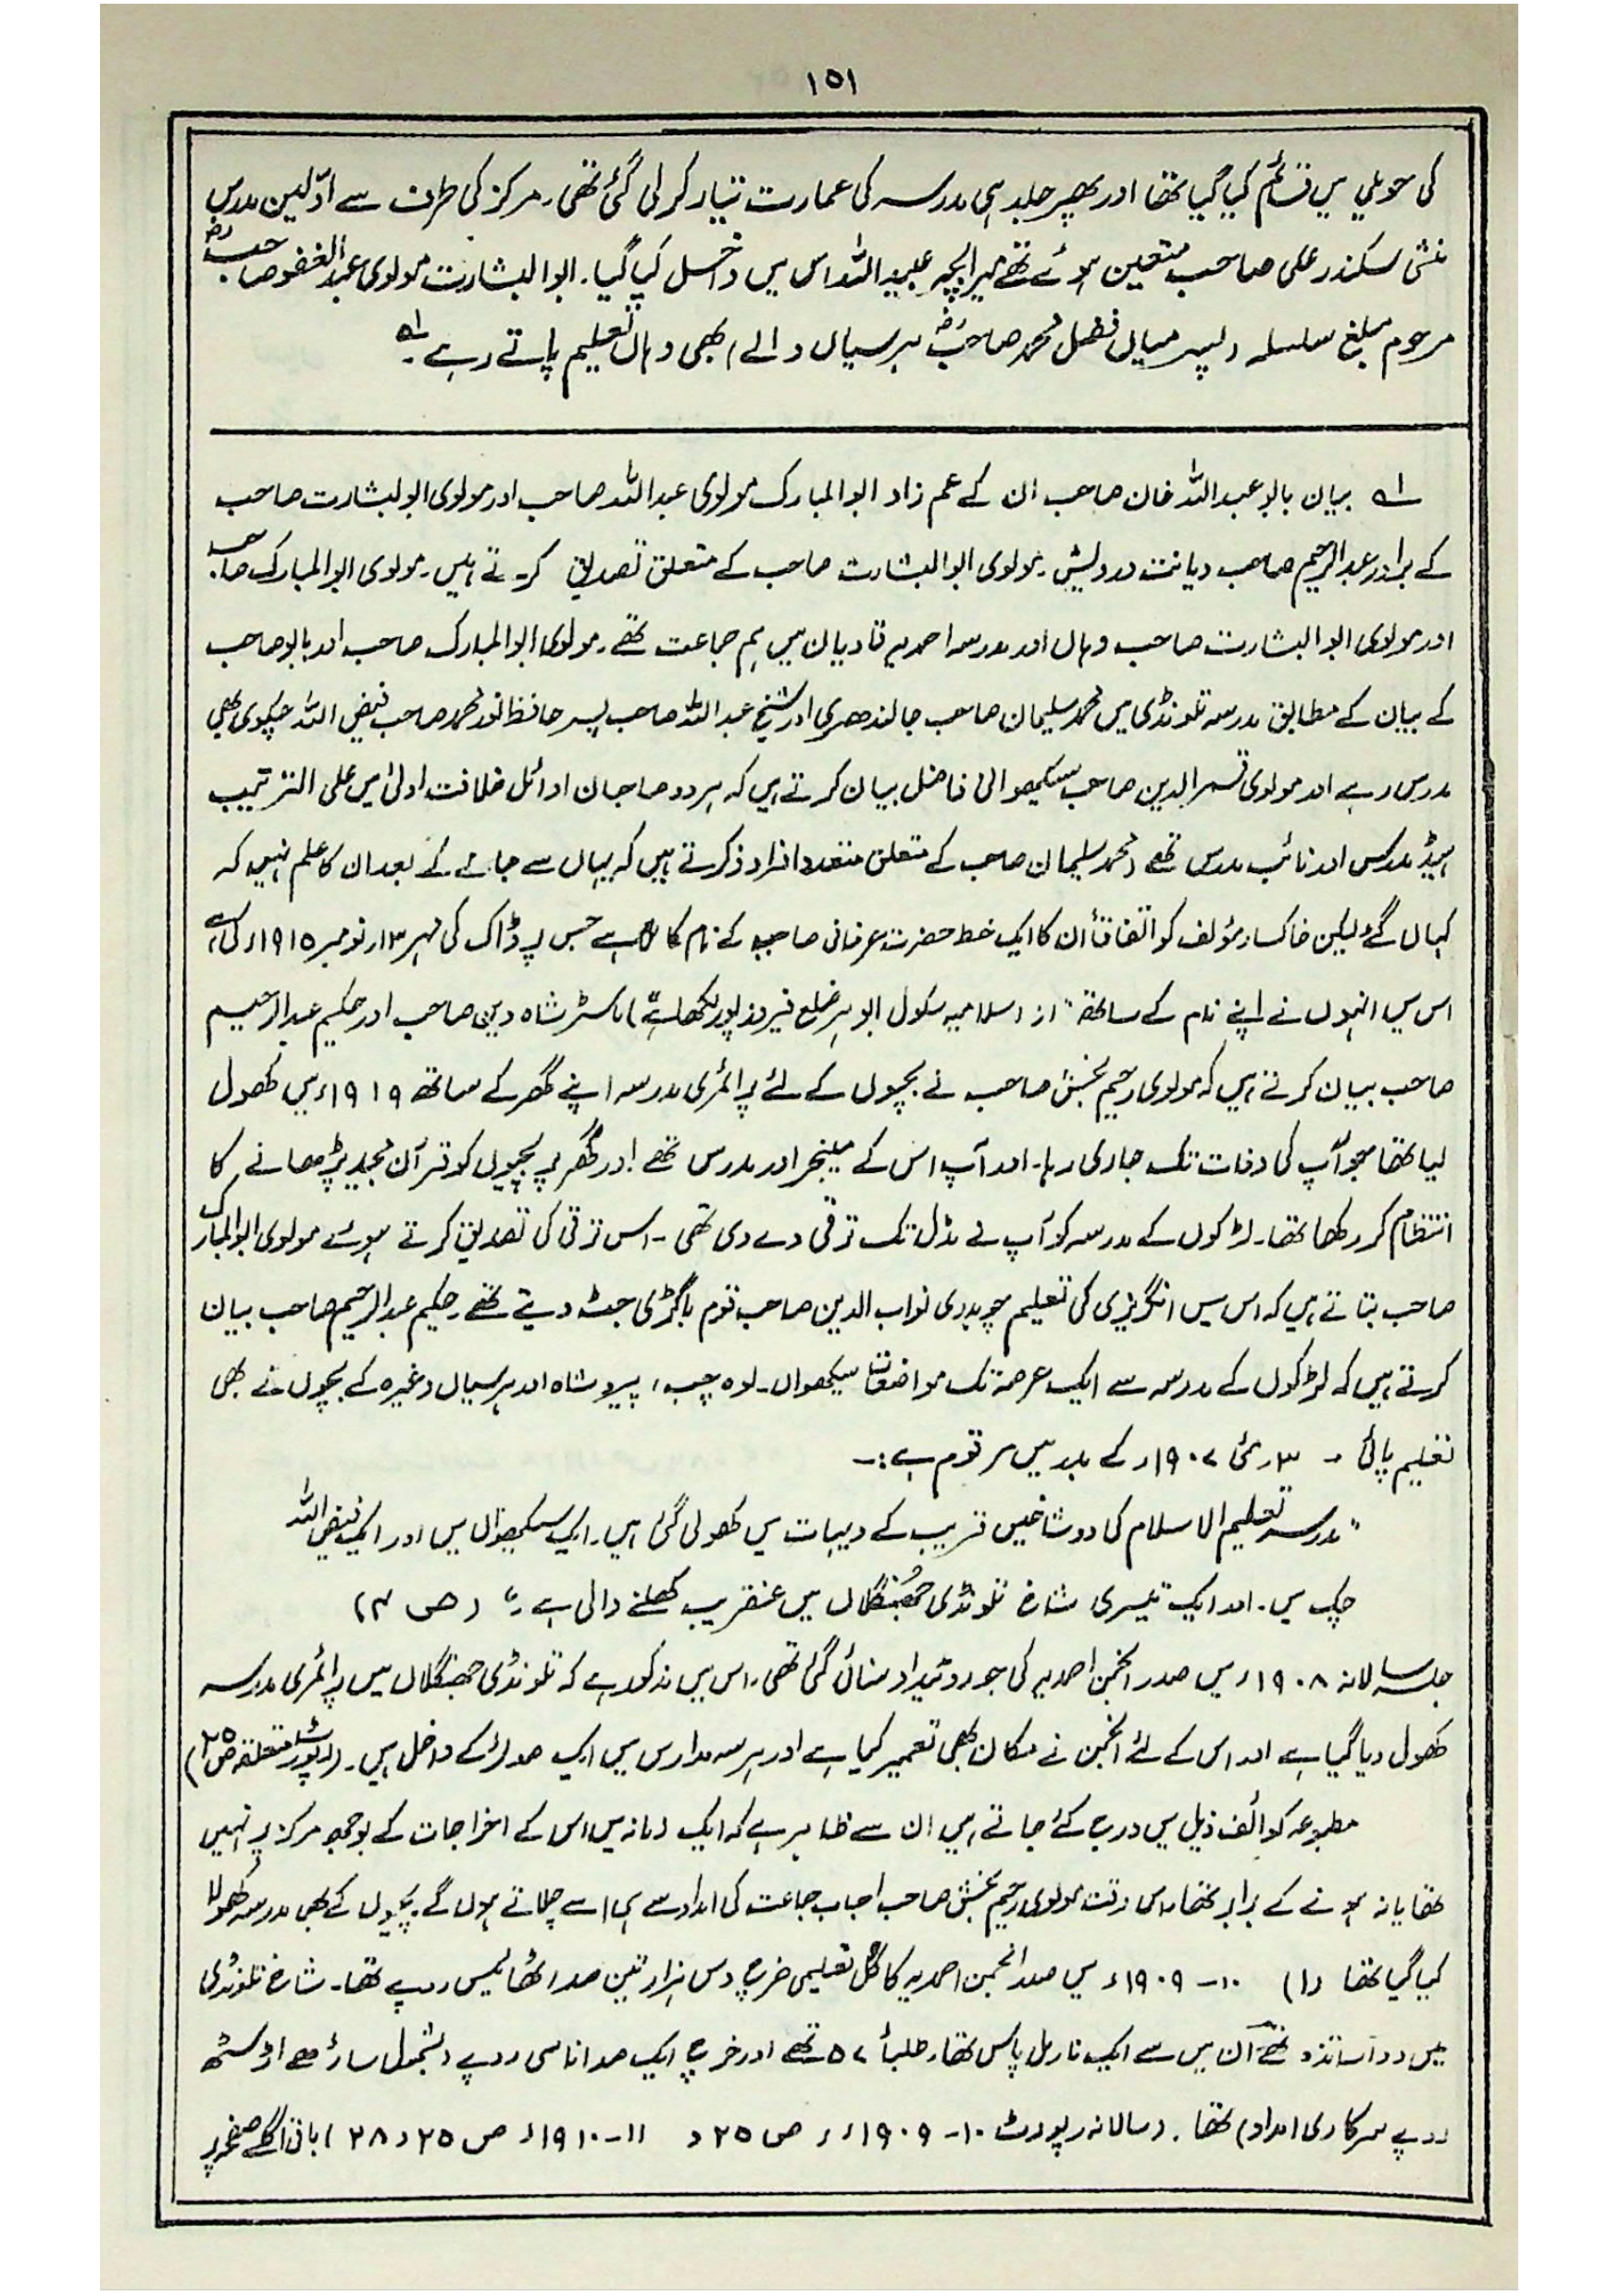 ۱۵۱
کی حویلی میں قائم کیا گیا تھا اور پھر جلد ہی مدرسہ کی عمارت تیار کر لی گئی تھی۔ مرکز کی طرف سے اوّلین مدرس
منشی سکندر علی صاحب متعین ہوئے تھے میرا بچہ عبید اللہ اس میں داخل کیا گیا۔ ابوالبشارت مولوی عبدالغفور صاحبؓ
مرحوم مبلغ سلسلہ (پسر میاں فضل محمد صاحبؓ ہرسیاں والے) بھی وہاں تعلیم پاتے رہے۔ ؎۱
؎۱ بیان بابو عبداللہ خان صاحب ان کے عم زاد ابوالمبارک مولوی عبداللہ صاحب اور مولوی ابوالبشارت صاحب
کے برادر عبدالرحیم صاحب دیانت درویش۔ مولوی ابوالبشارت صاحب کے متعلق تصدیق کرتے ہیں۔ مولوی ابوالمبارک صاحب
اور مولوی ابوالبشارت صاحب وہاں اور مدرسہ احمدیہ قادیان میں ہم جماعت تھے۔ مولوی ابوالمبارک صاحب اور بابو صاحب
کے بیان کے مطابق مدرسہ تلونڈی میں محمد سلیمان صاحب جالندھری اور شیخ عبداللہ صاحب پسر حافظ نور محمد صاحب فیض اللہ چکوی بھی
مدرس رہے اور مولوی قمر الدین صاحب سیکھوانی فاضل بیان کرتے ہیں کہ ہر دو صاحبان اوائل خلافت اولیٰ میں علی الترتیب
ہیڈ مدرس اور نائب مدرس تھے (محمد سلیمان صاحب کے متعلق متعدد افراد ذکر کرتے ہیں کہ یہاں سے جانے کے بعد ان کا علم نہیں کہ
کہاں گئے لیکن خاکسار مؤلف کو اتفاقاً ان کا ایک خط حضرت عرفانی صاحبؓ کے نام کا ملا ہے جس پر ڈاک کی مہر ۱۳؍نومبر ۱۹۱۵ء کی ہے
اس میں انہوں نے اپنے نام کے ساتھ "از اسلامیہ سکول ابوہر ضلع فیروزپور لکھا ہے) ماسٹر شاہ دین صاحب اور حکیم عبدالرحیم
صاحب بیان کرتے ہیں کہ مولوی رحیم بخش صاحب نے بچوں کے لئے پرائمری مدرسہ اپنے گھر کے ساتھ ۱۹۱۹ء میں کھول
لیا تھا جو آپ کی وفات تک جاری رہا۔ اور آپ اس کے مینجر اور مدرس تھے اور گھر پر بچیوں کو قرآن مجید پڑھانے کا
انتظام کر رکھا تھا۔ لڑکوں کے مدرسہ کو آپ نے مڈل تک ترقی دے دی تھی۔ اس ترقی کی تصدیق کرتے ہوئے مولوی ابوالمبارک
صاحب بتاتے ہیں کہ اس میں انگریزی کی تعلیم چوہدری نواب الدین صاحب قوم باگڑی جٹ دیتے تھے۔ حکیم عبدالرحیم صاحب بیان
کرتے ہیں کہ لڑکوں کے مدرسہ سے ایک عرصہ تک مواضعات سیکھواں۔ لوہ چپ، پیرو شاہ اور ہرسیاں وغیرہ کے بچوں نے بھی
تعلیم پائی۔ ۳۰ مئی ۱۹۰۷ء کے بدر میں مرقوم ہے:۔
"مدرسہ تعلیم الاسلام کی دو شاخیں قریب کے دیہات میں کھولی گئی ہیں۔ ایک سیکھواں میں اور ایک فیض اللہ
چک میں۔ اور ایک تیسری شاخ تلونڈی جھُنگلاں میں عنقریب کھلنے والی ہے"۔ (ص ۳)
جلسہ سالانہ ۱۹۰۸ء میں صدر انجمن احمدیہ کی جو روئیداد سنائی گئی تھی۔ اس میں مذکور ہے کہ تلونڈی جھنگلاں میں پرائمری مدرسہ
کھول دیا گیا ہے اور اس کے لئے انجمن نے مکان بھی تعمیر کیا ہے اور ہر سہ مدارس میں ایک صد لڑکے داخل ہیں۔ (رپورٹ متعلقہ ص ۲۵)
مطبوعہ کوائف ذیل میں درج کئے جاتے ہیں ان سے ظاہر ہے کہ ایک زمانہ میں اس کے اخراجات کے بوجھ مرکز پر نہیں
تھا یا نہ ہونے کے برابر تھا۔ اس وقت مولوی رحیم بخش صاحب احباب جماعت کی امداد سے ہی اسے چلاتے ہوں گے۔ بچیوں کے بھی مدرسہ کھولا
کیا گیا تھا (۱) ۱۰۔۱۹۰۹ء میں صدر انجمن احمدیہ کا کُل تعلیمی خرچ دس ہزار تین صد اٹھائیس روپے تھا۔ شاخ تلونڈی
میں دو اساتذہ تھے اُن میں سے ایک نارمل پاس تھا۔ طلباء ۵۷ تھے اور خرچ ایک صد اناسی روپے (بشمول ساڑھے اڑسٹھ
روپے سرکاری امداد) تھا۔ (سالانہ رپورٹ ۱۰۔۱۹۰۹ء، ص ۲۵ و ۱۱۔۱۹۱۰ء ص ۲۵ و ۲۸) باقی اگلے صفحہ پر